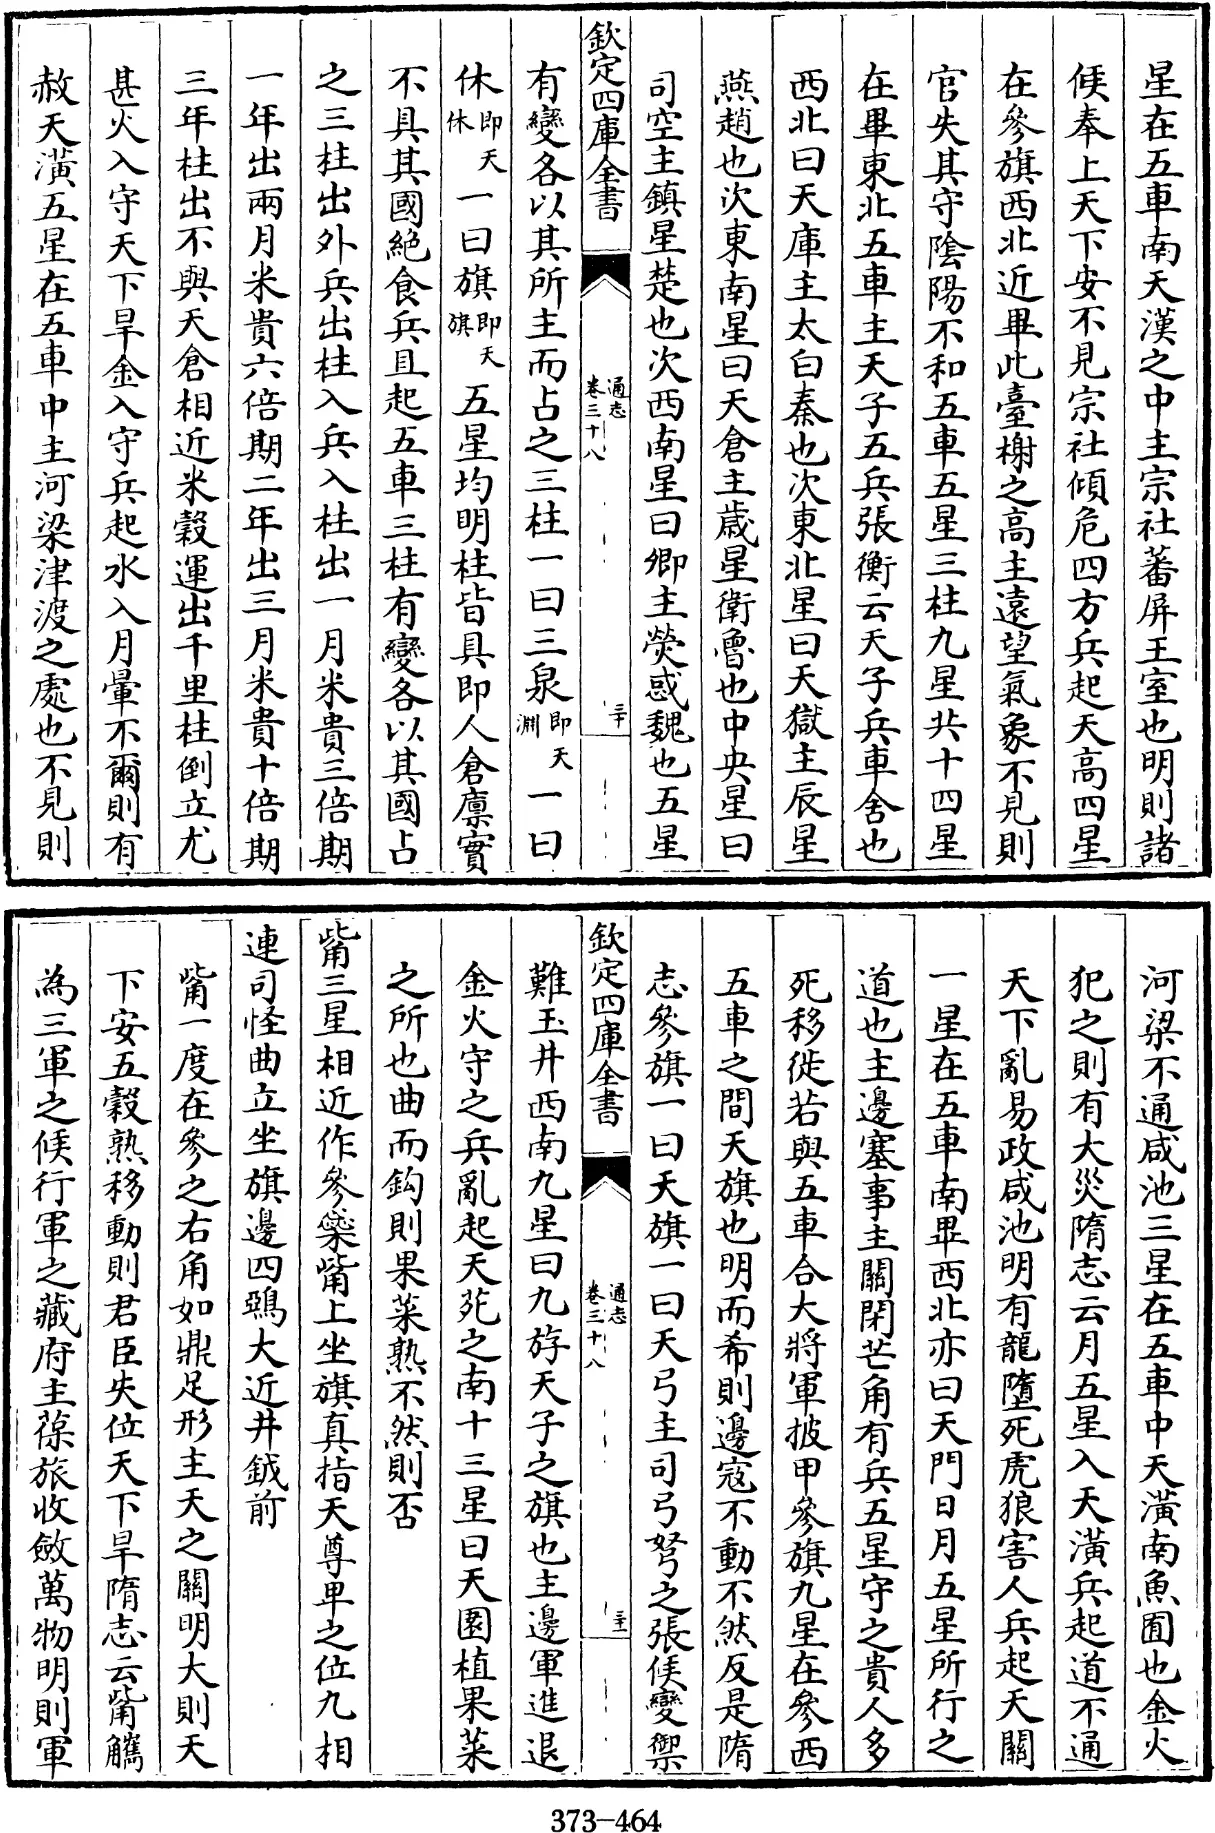 星在五車南天漢之中主宗社蕃屏王室也明則諸
侯奉上天下安不見宗社傾危四方兵起天高四星
在參旗西北近畢此臺榭之高主遠望氣象不見則
官失其守陰陽不和五車五星三柱九星共十四星
在畢東北五車主天子五兵張衡云天子兵車舍也
西北曰天庫主太白秦也次東北星曰天獄主辰星
燕趙也次東南星曰天倉主歲星衛魯也中央星曰
司空主鎮星楚也次西南星曰卿主熒惑魏也五星
欽定四庫全書
通志
卷三十八
三十
有變各以其所主而占之三柱一曰三泉即天淵一曰
休即天休一曰旗即天旗五星均明柱皆具即人倉廪實
不具其國絕食兵且起五車三柱有變各以其國占
之三柱出外兵出柱入兵入柱出一月米貴三倍期
一年出兩月米貴六倍期二年出三月米貴十倍期
三年柱出不與天倉相近米穀運出千里柱倒立尤
甚火入守天下旱金入守兵起水入月暈不爾則有
赦天潢五星在五車中主河梁津渡之處也不見則
河梁不通咸池三星在五車中天潢南魚囿也金火
犯之則有大災隋志云月五星入天潢兵起道不通
天下亂易政咸池明有龍墮死虎狼害人兵起天關
一星在五車南畢西北亦曰天門日月五星所行之
道也主邊塞事主關閉芒角有兵五星守之貴人多
死移徙若與五車合大將軍披甲參旗九星在參西
五車之間天旗也明而希則邊寇不動不然反是隋
志參旗一曰天旗一曰天弓主司弓弩之張候變禦
欽定四庫全書
通志
卷三十八
三十一
難玉井西南九星曰九斿天子之旗也主邊軍進退
金火守之兵亂起天苑之南十三星曰天園植果菜
之所也曲而鈎則果菜熟不然則否
觜三星相近作參蘂觜上坐旗真指天尊卑之位九相
連司怪曲立坐旗邊四鴉大近井鉞前
觜一度在參之右角如鼎足形主天之關明大則天
下安五穀熟移動則君臣失位天下旱隋志云觜觿
為三軍之候行軍之藏府主葆旅收斂萬物明則軍
373-464